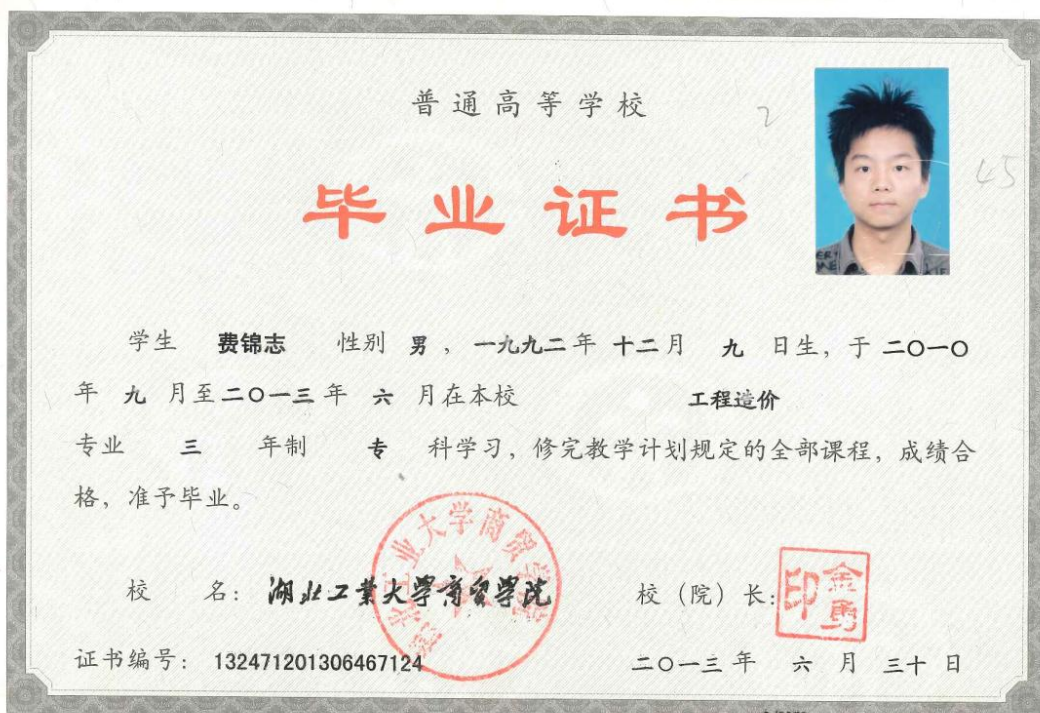 普通高等学校
2
45
毕业证书
学生 费锦志 性别 男，一九九二年 十二月 九 日生，于 二〇一〇
年 九 月至二〇一三年 六 月在本校 工程造价
专业 三 年制 专 科学习，修完教学计划规定的全部课程，成绩合
格，准予毕业。
湖北工业大学商贸学院
校 名：湖北工业大学商贸学院 校（院）长：金勇印
证书编号：132471201306467124 二〇一三年 六 月 三十 日